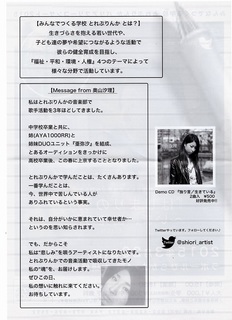 【みんなでつくる学校 とれぶりんか とは？】
生きづらさを抱える若い世代や、
子ども達の夢や希望につながるような活動で
彼らの健全育成を目指し、
「福祉・平和・環境・人権」4つのテーマによって
様々な分野で活動しています。
【Message from 奥山沙理】
私はとれぶりんかの音楽部で
歌手活動を3年ほどしてきました。
中学校卒業と共に、
姉(AYA1000RR)と
姉妹DUOユニット「亜弥沙」を結成、
とあるオーディションをきっかけに
高校卒業後、この春に上京することとなりました。
とれぶりんかで学んだことは、たくさんあります。
一番学んだことは、
今、世界中で苦しんでいる人が
ありふれているという事実。
それは、自分がいかに恵まれていて幸せ者か…
というのを思い知らされます。
でも、だからこそ
私は"悲しみ"を唄うアーティストになりたいです。
とれぶりんかでの音楽活動で吸収してきたモノ
私の"魂"を、お届けします。
ぜひこの日、
私の想いに触れに来てください。
お待ちしています。
Damo CD 「独り言／生きている」
2曲入 ¥500
好評発売中!!
Twitterやっています。フォローしてください。
@shiori_artist